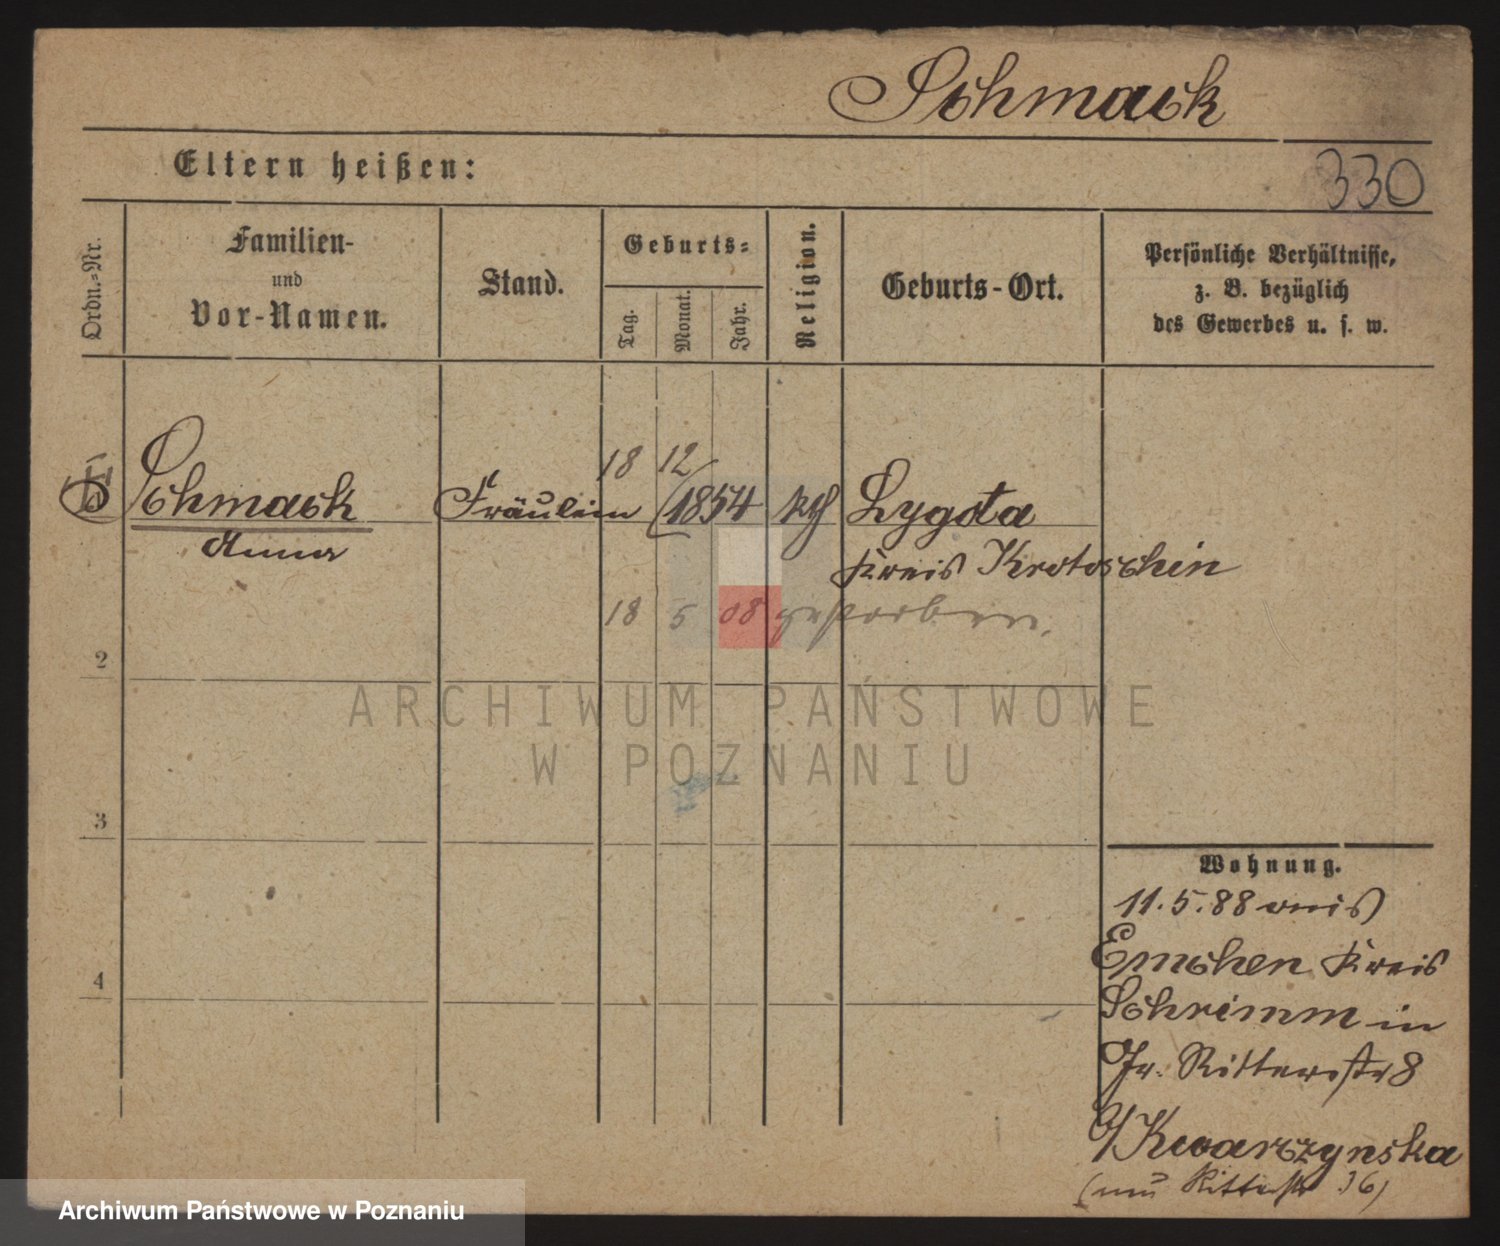 Schmack
Eltern heißen:
330
Ordn.-Nr.
Familien-
und
Vor-Namen.
Stand.
Geburts-
Tag.
Monat.
Jahr.
Religion.
Geburts-Ort.
Persönliche Verhältnisse,
z. B. bezüglich
des Gewerbes u. s. w.
18 12
Schmack Fräulein 1854 kth Lygota
Anna
Kreis Krotoschin
18 5 08 gestorben.
2
ARCHIWUM PAŃSTWOWE
W POZNANIU
3
Wohnung.
11.5.88 aus
Emchen Kreis
4
Schrimm in
Gr. Ritterstr 8
b/ Kwarczynska
(nun Ritterstr 36)
Archiwum Państwowe w Poznaniu